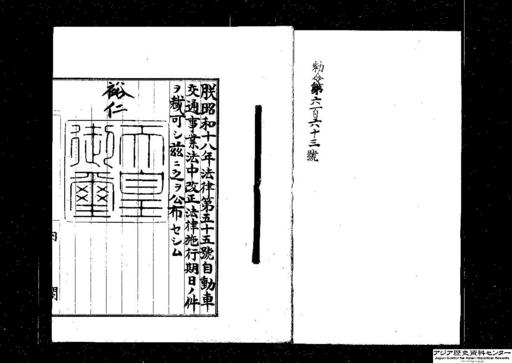 勅令第六百六十三號
朕昭和十八年法律第五十五號自動車
交通事業法中改正法律施行期日ノ件
ヲ裁可シ茲ニ之ヲ公布セシム
裕仁
天皇
御璽
内
閣
アジア歴史資料センター
Japan Center for Asian Historical Records